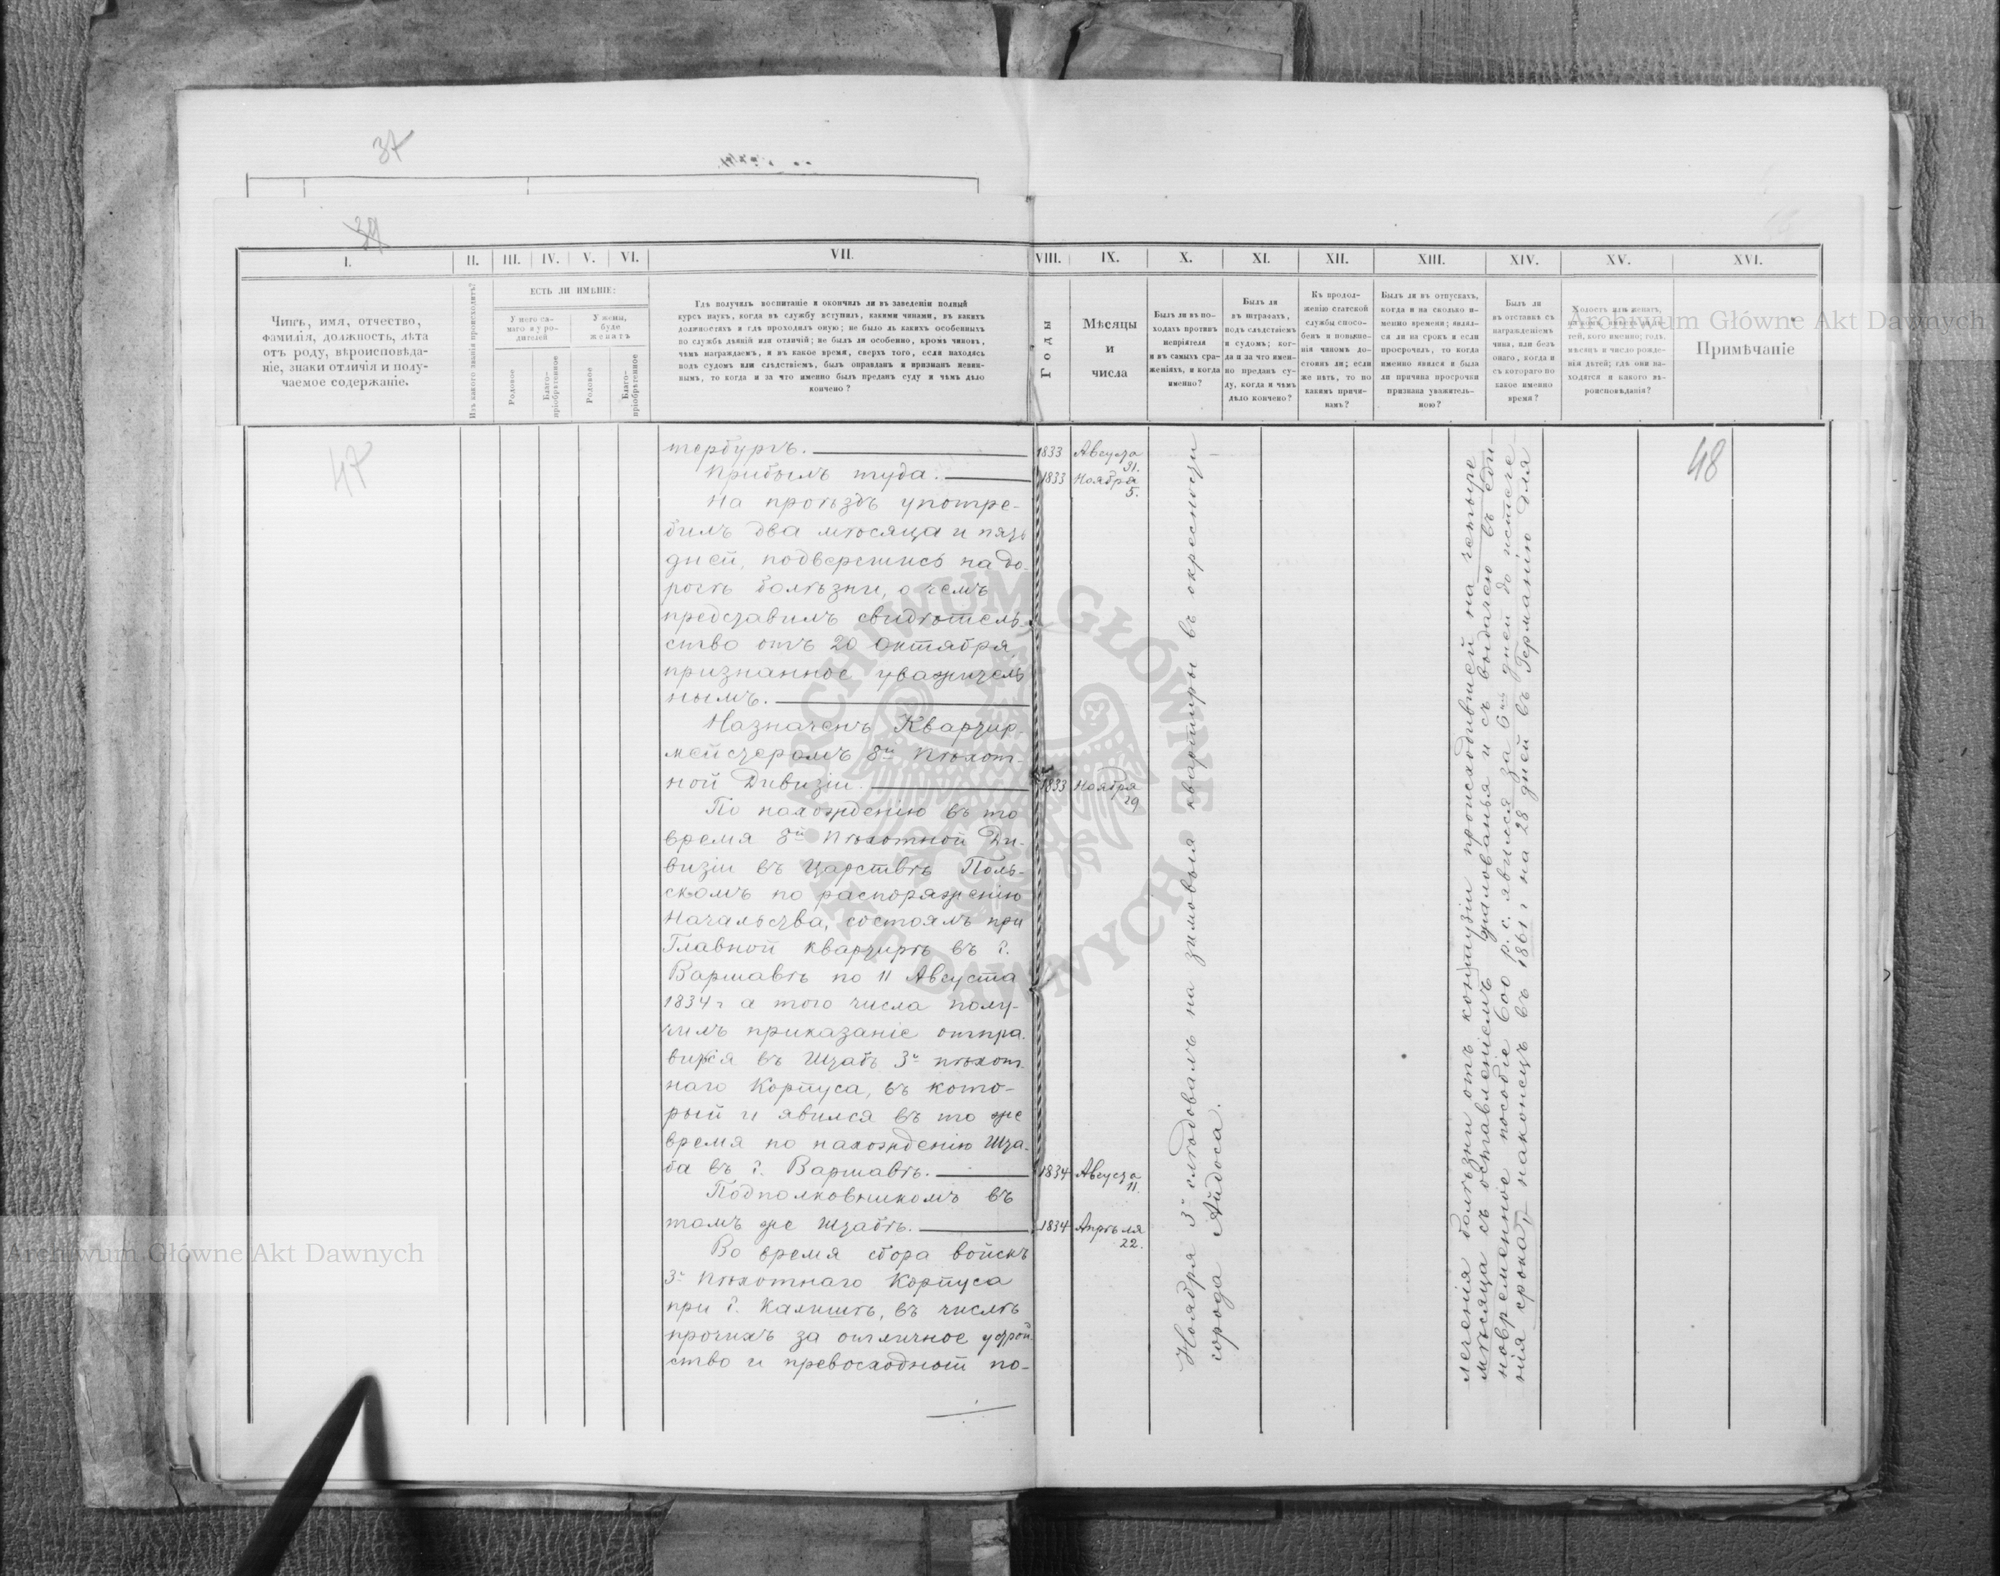 37
37
I.
II.
III.
IV.
V.
VI.
VII.
VIII.
IX.
X.
XI.
XII.
XIII.
XIV.
XV.
XVI.
Чинъ, имя, отчество,
фамилія, должность, лѣта
отъ роду, вѣроисповѣда-
ніе, знаки отличія и полу-
чаемое содержаніе.
Изъ какого званія происходитъ?
ЕСТЬ ЛИ ИМѢНІЕ:
У него са-
маго и у ро-
дителей
У жены,
буде
женатъ
Родовое
Благо-
пріобрѣтенное
Родовое
Благо-
пріобрѣтенное
Гдѣ получилъ воспитаніе и окончилъ ли въ заведеніи полный
курсъ наукъ, когда въ службу вступилъ, какими чинами, въ какихъ
должностяхъ и гдѣ проходилъ оную; не было ли какихъ особенныхъ
по службѣ дѣяній или отличій; не былъ ли особенно, кромѣ чиновъ,
чѣмъ награждаемъ, и въ какое время, сверхъ того, если находясь
подъ судомъ или слѣдствіемъ, былъ оправданъ и признанъ невин-
нымъ, то когда и за что именно былъ преданъ суду и чѣмъ дѣло
кончено?
Годы
Мѣсяцы
и
числа
Былъ ли въ по-
ходахъ противъ
непріятеля
и въ самыхъ сра-
женіяхъ, и когда
именно?
Былъ ли
въ штрафахъ,
подъ слѣдствіемъ
и судомъ; ког-
да и за что имен-
но преданъ су-
ду, когда и чѣмъ
дѣло кончено?
Къ продол-
женію статской
службы спосо-
бенъ и повыше-
нія чиномъ до-
стоинъ ли; если
же нѣтъ, то по
какимъ причи-
намъ?
Былъ ли въ отпускахъ,
когда и на сколько и-
менно времени; являл-
ся ли на срокъ и если
просрочилъ, то когда
именно явился и была
ли причина просрочки
признана уважитель-
ною?
Былъ ли
въ отставкѣ съ
награжденіемъ
чина, или безъ
онаго, когда и
съ котораго по
какое именно
время?
Холостъ или женатъ,
тей, кого именно; годъ,
мѣсяцъ и число рожде-
нія дѣтей; гдѣ они на-
ходятся и какого вѣ-
роисповѣданія?
Примѣчаніе
47
48
тербургъ. 1833 Августа 31.
Прибылъ туда. 1833 Ноября 5.
На проѣздъ употре-
билъ два мѣсяца и пять
дней, подвергшись на до-
рогѣ болѣзни, о чемъ
представилъ свидѣтель
ство отъ 20 Октября,
признанное уважитель
нымъ.
Назначенъ Квартир
мейстеромъ 8й Пѣхот-
ной Дивизіи. 1833 Ноября 29
По нахожденію въ то
время 8й Пѣхотной Ди-
визіи въ Царствѣ Поль-
скомъ по распоряженію
Начальства, состоялъ при
Главной квартирѣ въ г.
Варшавѣ по 11 Августа
1834 г а того числа полу-
чилъ приказаніе отпра-
виться въ Штабъ 3го пѣхот
наго Корпуса, въ кото-
рый и явился въ то же
время по нахожденію Шта-
ба въ г. Варшавѣ. 1834 Августа 11.
Подполковникомъ въ
томъ же Штабѣ. 1834 Апрѣля 22.
Во время сбора войскъ
3го Пѣхотнаго Корпуса
при г. Калишѣ, въ числѣ
прочихъ за отличное устрой
ство и превосходной по-
Ноября 3го слѣдовалъ на зимовыя квартиры въ окрестности
города Айдоса.
леченія болѣзни отъ контузіи происходившей на четыре
мѣсяца съ оставленіемъ жалованья и съ выдачею въ еди-
новременное пособіе 600 р. с. явился за 6ть дней до истече-
нія срока, наконецъ въ 1861 г на 28 дней въ Германію для
Archiwum Główne Akt Dawnych
Archiwum Główne Akt Dawnych
ARCHIWUM GŁÓWNE AKT DAWNYCH